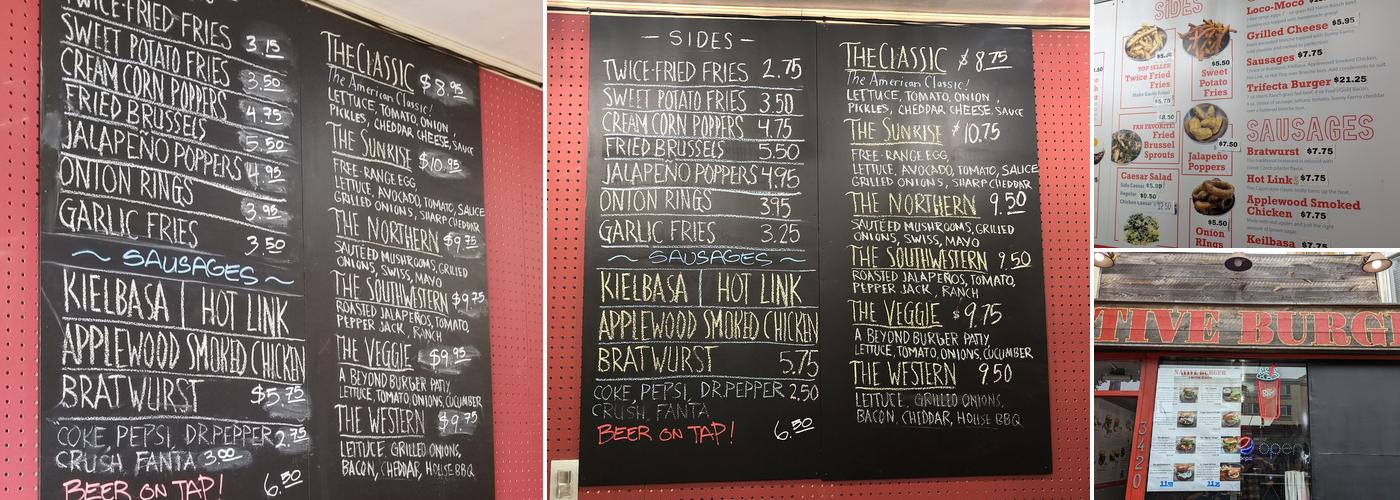 TWICE-FRIED FRIES 3.15
SWEET POTATO FRIES 3.50
CREAM CORN POPPERS 4.75
FRIED BRUSSELS 5.50
JALAPEÑO POPPERS 4.95
ONION RINGS 3.95
GARLIC FRIES 3.50
~ SAUSAGES ~
KIELBASA | HOT LINK
APPLEWOOD SMOKED CHICKEN
BRATWURST $5.75
COKE, PEPSI, DR.PEPPER 2.75
CRUSH, FANTA 3.00
BEER ON TAP! 6.50
THE CLASSIC $8.95
The American Classic!
LETTUCE, TOMATO, ONION,
PICKLES, CHEDDAR CHEESE, SAUCE
THE SUNRISE $10.95
FREE-RANGE EGG,
LETTUCE, AVOCADO, TOMATO, SAUCE
GRILLED ONIONS, SHARP CHEDDAR
THE NORTHERN $9.75
SAUTEED MUSHROOMS, GRILLED
ONIONS, SWISS, MAYO
THE SOUTHWESTERN $9.75
ROASTED JALAPEÑOS, TOMATO,
PEPPER JACK, RANCH
THE VEGGIE $9.95
A BEYOND BURGER PATTY,
LETTUCE, TOMATO, ONIONS, CUCUMBER
THE WESTERN $9.75
LETTUCE, GRILLED ONIONS,
BACON, CHEDDAR, HOUSE BBQ
- SIDES -
TWICE-FRIED FRIES 2.75
SWEET POTATO FRIES 3.50
CREAM CORN POPPERS 4.75
FRIED BRUSSELS 5.50
JALAPEÑO POPPERS 4.95
ONION RINGS 3.95
GARLIC FRIES 3.25
~ SAUSAGES ~
KIELBASA | HOT LINK
APPLEWOOD SMOKED CHICKEN
BRATWURST 5.75
COKE, PEPSI, DR.PEPPER 2.50
CRUSH, FANTA
BEER ON TAP! 6.50
THE CLASSIC $8.75
The American Classic!
LETTUCE, TOMATO, ONION,
PICKLES, CHEDDAR CHEESE, SAUCE
THE SUNRISE $10.75
FREE-RANGE EGG,
LETTUCE, AVOCADO, TOMATO, SAUCE
GRILLED ONIONS, SHARP CHEDDAR
THE NORTHERN 9.50
SAUTEED MUSHROOMS, GRILLED
ONIONS, SWISS, MAYO
THE SOUTHWESTERN 9.50
ROASTED JALAPEÑOS, TOMATO,
PEPPER JACK, RANCH
THE VEGGIE $9.75
A BEYOND BURGER PATTY,
LETTUCE, TOMATO, ONIONS, CUCUMBER
THE WESTERN 9.50
LETTUCE, GRILLED ONIONS,
BACON, CHEDDAR, HOUSE BBQ
SIDES
TOP SELLER
Twice
Fried
$5.75
$5.50
Sweet
Potato
Fries
FAN FAVORITE!
Fried
Brussel
Sprouts
$7.50
Jalapeño
Poppers
Caesar Salad
$5.50
Onion
Rings
Loco-Moco
Grilled Cheese $5.95
Sausages $7.75
Trifecta Burger $21.25
SAUSAGES
Bratwurst $7.75
Hot Link $7.75
Applewood Smoked
Chicken $7.75
Keilbasa $7.75
TIVE BURG
NATIVE BURGER
3420
open